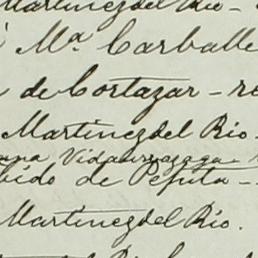 Martinez del Rio -
Mª Carballe
de Cortazar - re
Martinez del Rio -
ana Vidaurrazaga -
bido de Pepita -
Martinez del Rio.